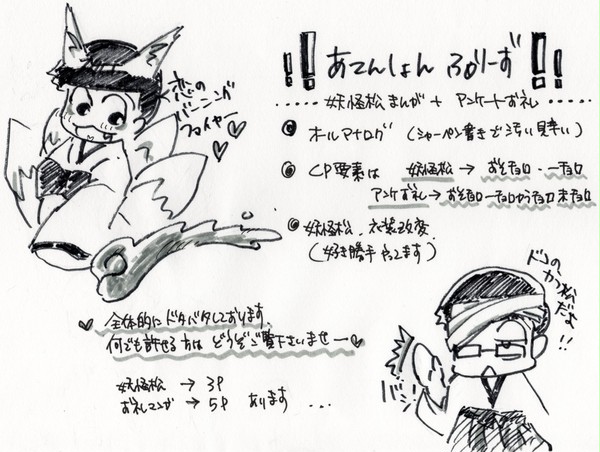 恋の
バーニング
ファイヤー
!! あてんしょん ぷりーず !!
・・・・・妖怪松まんが + アンケートお礼・・・・・
オールアナログ (シャーペン書きで汚い、見辛い)
CP要素は 妖怪松→おそチョロ・一チョロ
アンケお礼→おそチョロ 一チョロ カラチョロ 末チョロ
妖怪松、衣装改変
(好き勝手やってます)
全体的にドタバタしております、
何でも許せる方は どうぞご覧下さいませー
妖怪松 → 3P
お礼マンガ → 5P あります ...
ドコの
カツ松
だよ!!
バシッ